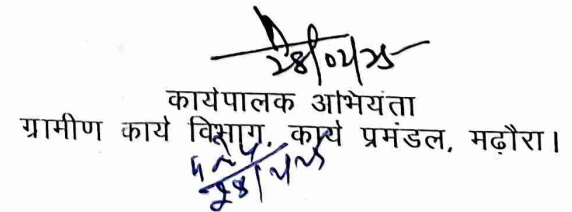 28/02/25
कार्यपालक अभियंता
ग्रामीण कार्य विभाग, कार्य प्रमंडल, मढ़ौरा।